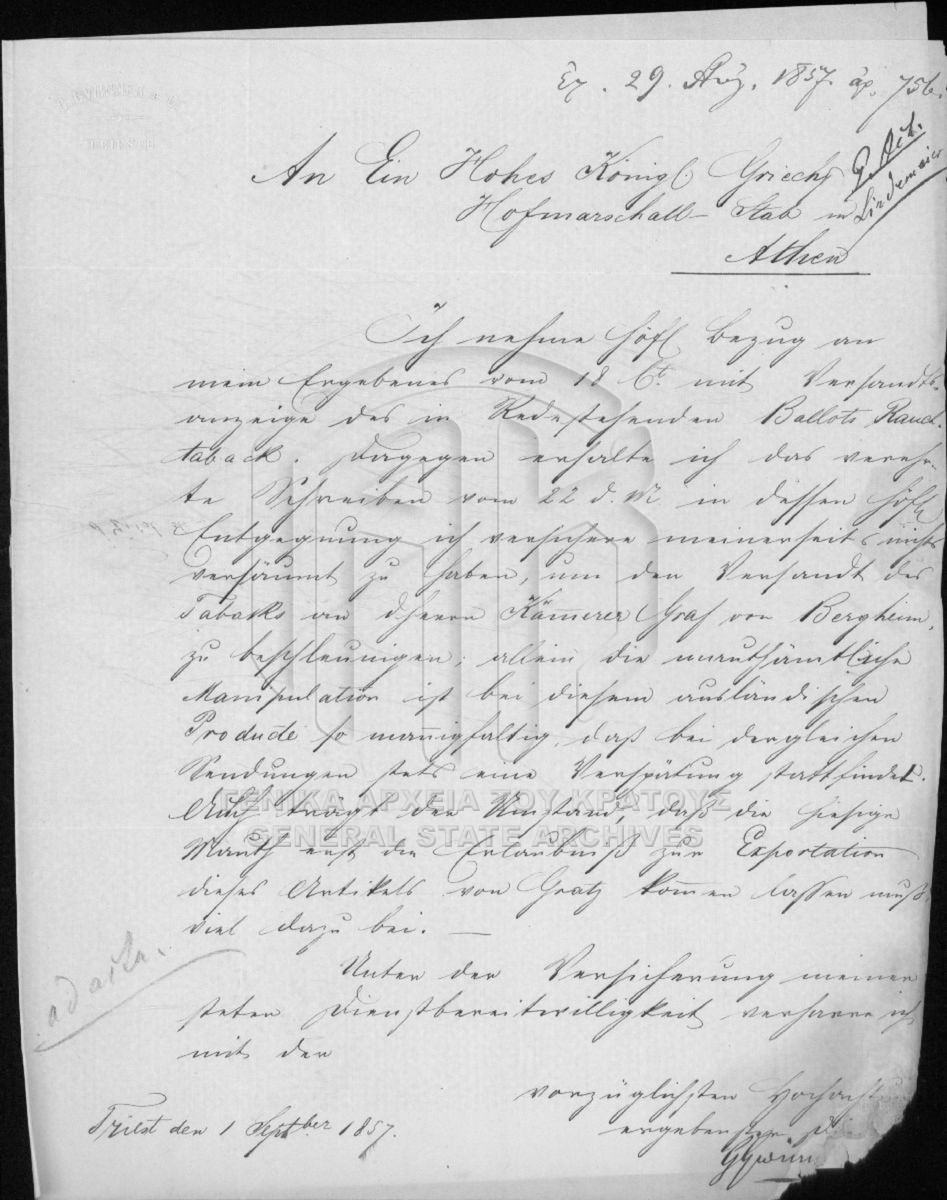 TRIESTE
Ἐλ. 29. Αὐγ. 1857. ἀρ. 756.
P. Act.
Lindermaier
An Ein Hohes Königl. Griech.
Hofmarschall-Stab in
Athen
Ich nehme höfl Bezug an
mein Ergebenes vom 18 Ct mit Versandts-
anzeige des in Redestehenden Ballots Rauch-
taback. Dagegen erhalte ich das verehr-
te Schreiben vom 22 d. M. in dessen höfl
Entgegnung ich versichere meinerseits nichts
versäumt zu haben, um den Versandt des
Tabacks an Herrn Kämerer Graf von Bergheim,
zu beschleunigen; allein die mauthämtliche
Manipulation ist bei diesem ausländischen
Producte so mannigfaltig, daß bei dergleichen
Sendungen stets eine Verspätung stattfindet.
Auch trägt der Umstand, daß die hiesige
Mauth erst die Erlaubniß zur Exportation
dieses Artikels von Gratz kommen lassen muß,
viel dazu bei. —
ad acta.
Unter der Versicherung meiner
steten Dienstbereitwilligkeit verharre ich
mit der
vorzüglichsten Hochacht
ergebenster
Triest den 1 Septber 1857.
ΓΕΝΙΚΑ ΑΡΧΕΙΑ ΤΟΥ ΚΡΑΤΟΥΣ
GENERAL STATE ARCHIVES